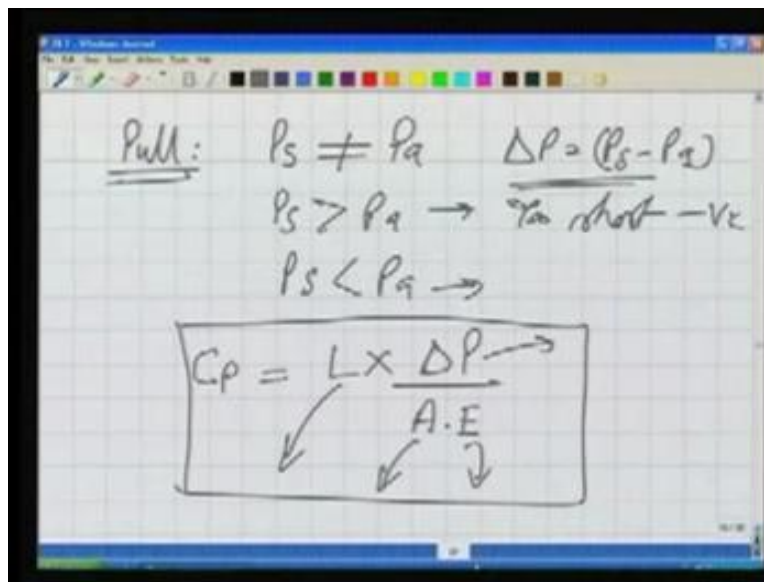 Pull: Ps ≠ Pa ΔP = (Ps - Pa)
Ps > Pa → Too short -Ve
Ps < Pa →
Cp = L × ΔP
A.E